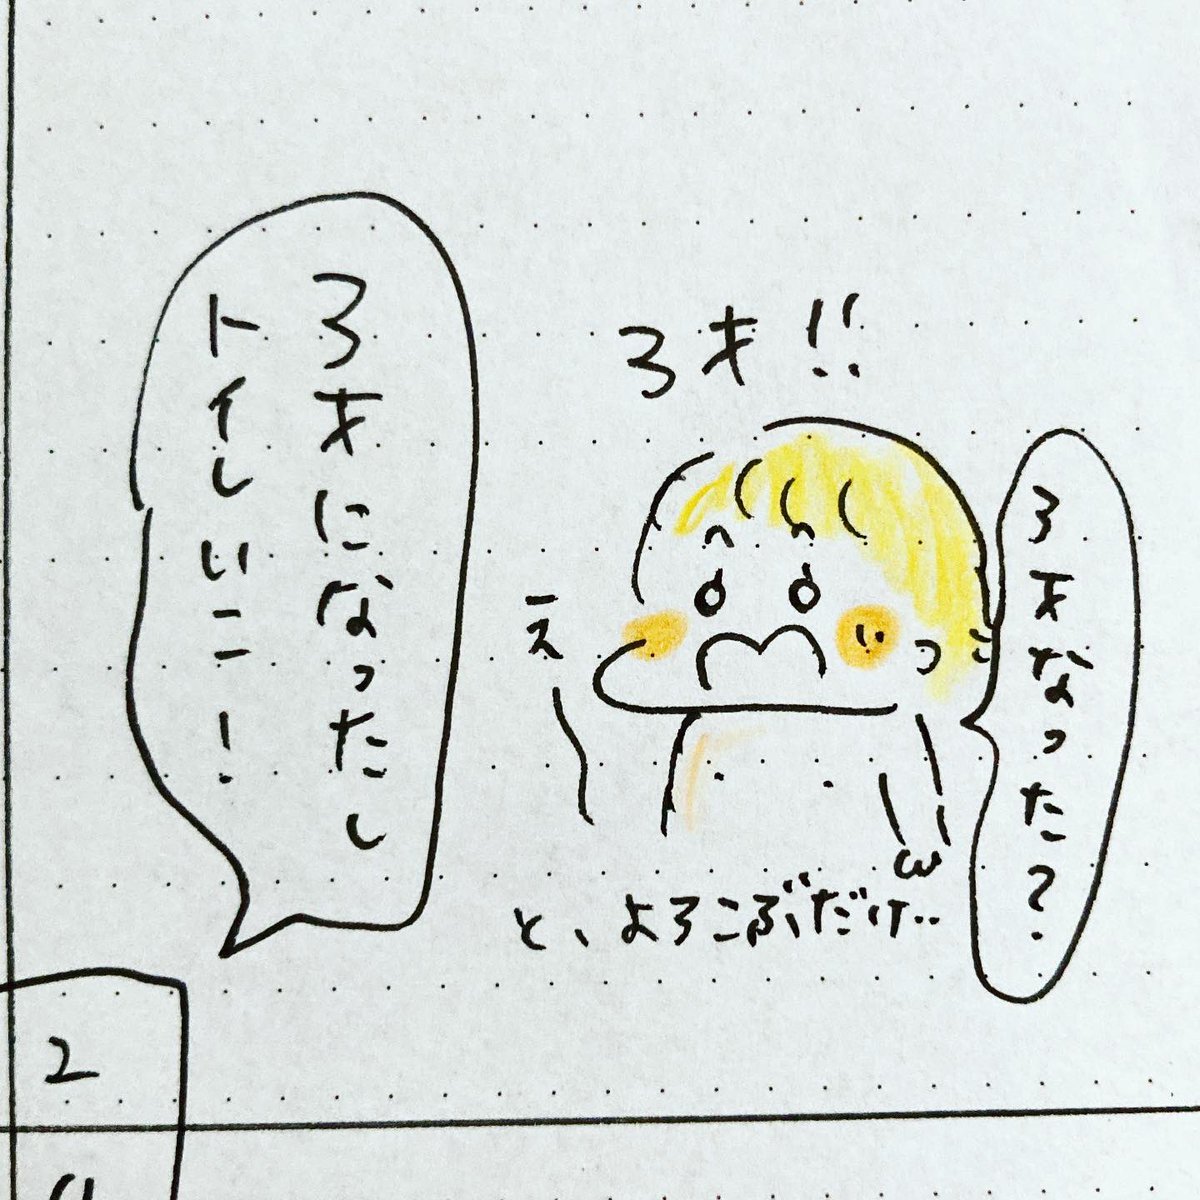 3才!!
3才なった?
3才になったし
トイレいこ!
え〜
と、よろこぶだけ..
2